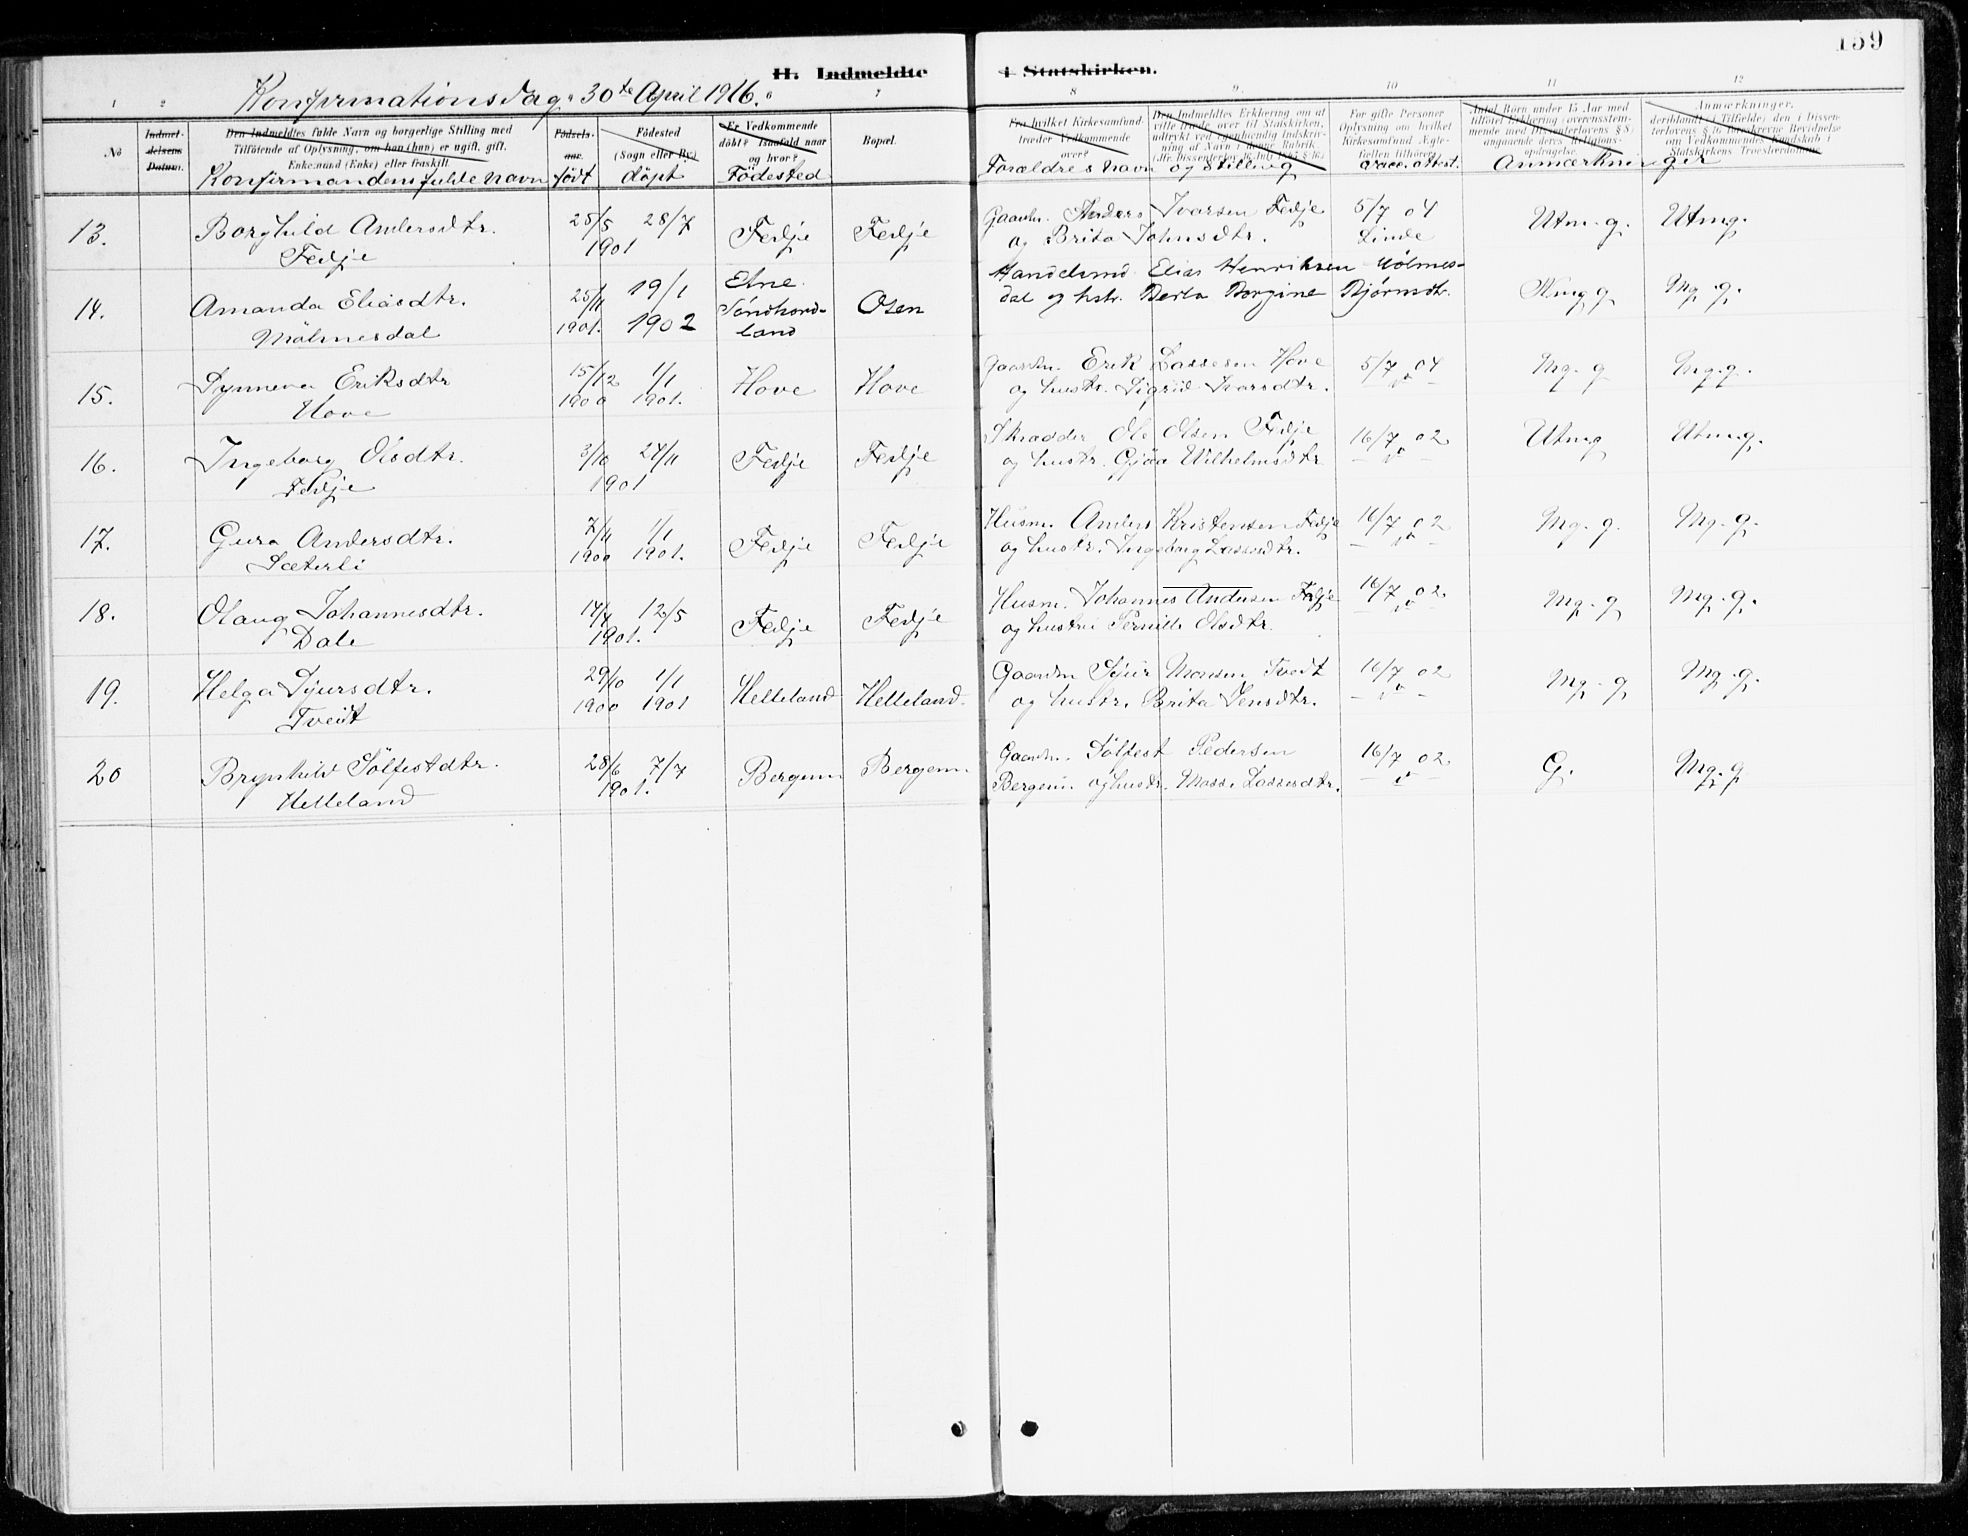 159
H. Indmeldte i Statskirken.
Konfirmationsdag 30te April 1916.
1 2 6 7 8 9. 10 11 12
No
Indmeldelsens Datum.
Den Indmeldtes fulde Navn og borgerlige Stilling med
Tilföiende af Oplysning, om han (hun) er ugift, gift,
Enkemand (Enke) eller fraskilt.
Konfirmandens fulde Navn
Födselsaar.
födt
Födested
(Sogn eller By.)
döpt
Er Vedkommende
döbt? Isaafald naar
og hvor?
Födested
Bopæl.
Fra hvilket Kirkesamfund
træder Vedkommende
over?
Den Indmeldtes Erklæring om at
ville træde over til Statskirken,
udtrykt ved egenhændig Indskrivning
af Navn i denne Rubrik
Forældres Navn og Stilling
For gifte Personer
Oplysning om hvilket
Kirkesamfund Ægtefællen
tilhörer.
Vacc. attest.
Antal Börn under 15 Aar med
tilföiet Erklæring (overensstemmende
med Dissenterlovens § 8)
angaaende deres Religionsopdragelse.
Anmærkninger.
deriblandt (i Tilfælde) den i Dissenterlovens
§ 16 foreskrevne Bevidnelse
om Vedkommendes Kundskab i
Statskirkens Troeslærdomme.
Anmærkninger
13. Borghild Andersdtr. 25/5 28/7 Fedje Fedje Gaardm. Anders Ivarsen Fedje 5/7 04 Utm. g. Utmg.
Fedje 1901 og Brita Johnsdtr. Linde
14. Amanda Eliasdtr. 25/11 19/1 Etne Osen Handelsmd Elias Henriksen Mölmes- Mg. g.
Mölmesdal 1901. 1902 Söndhordland dal og hstr. Berta Borgine Bjørnsdtr.
15. Synneva Eriksdtr 15/12 1/1 Hove Hove Gaardm. Erik Lassesen Hove 5/7 04 Mg. g Mg.g.
Hove 1900 1901. og hustr. Sigrid Ivarsdtr.
16. Ingeborg Olsdtr. 3/10 24/11 Fedje Fedje Skrædder Ole Olsen Fedje 16/7 02 Utmg Utm.g.
Fedje 1901 og hustr. Gjöa Wilhelmsdtr
17. Guro Andersdtr. 7/11 1/1 Fedje Fedje Husm. Anders Kristensen Fedje 16/7 02 Mg. g. Mg. g.
Sæterli 1900 1901. og hustr. Ingeborg Lassesdtr.
18. Olaug Johannesdtr. 14/4 12/5 Fedje Fedje Husm. Johannes Andersen Fedje 16/7 02 Mg. g Mg. g.
Dale 1901. og hustru Pernille Olsdtr
19. Helga Sjursdtr. 29/10 1/1 Helleland Helleland Gaardm Sjur Monsen Tveit 16/7 02 Mg. g Mg. g.
Tveit 1900 1901 og hustr. Brita Jensdtr.
20 Brynhild Sölfestdtr. 28/6 7/7 Bergum Bergum Gaardm. Sölfest Pedersen 16/7 02 G. Mg. g
Helleland 1901. Bergum og hustr. Lassesdtr.